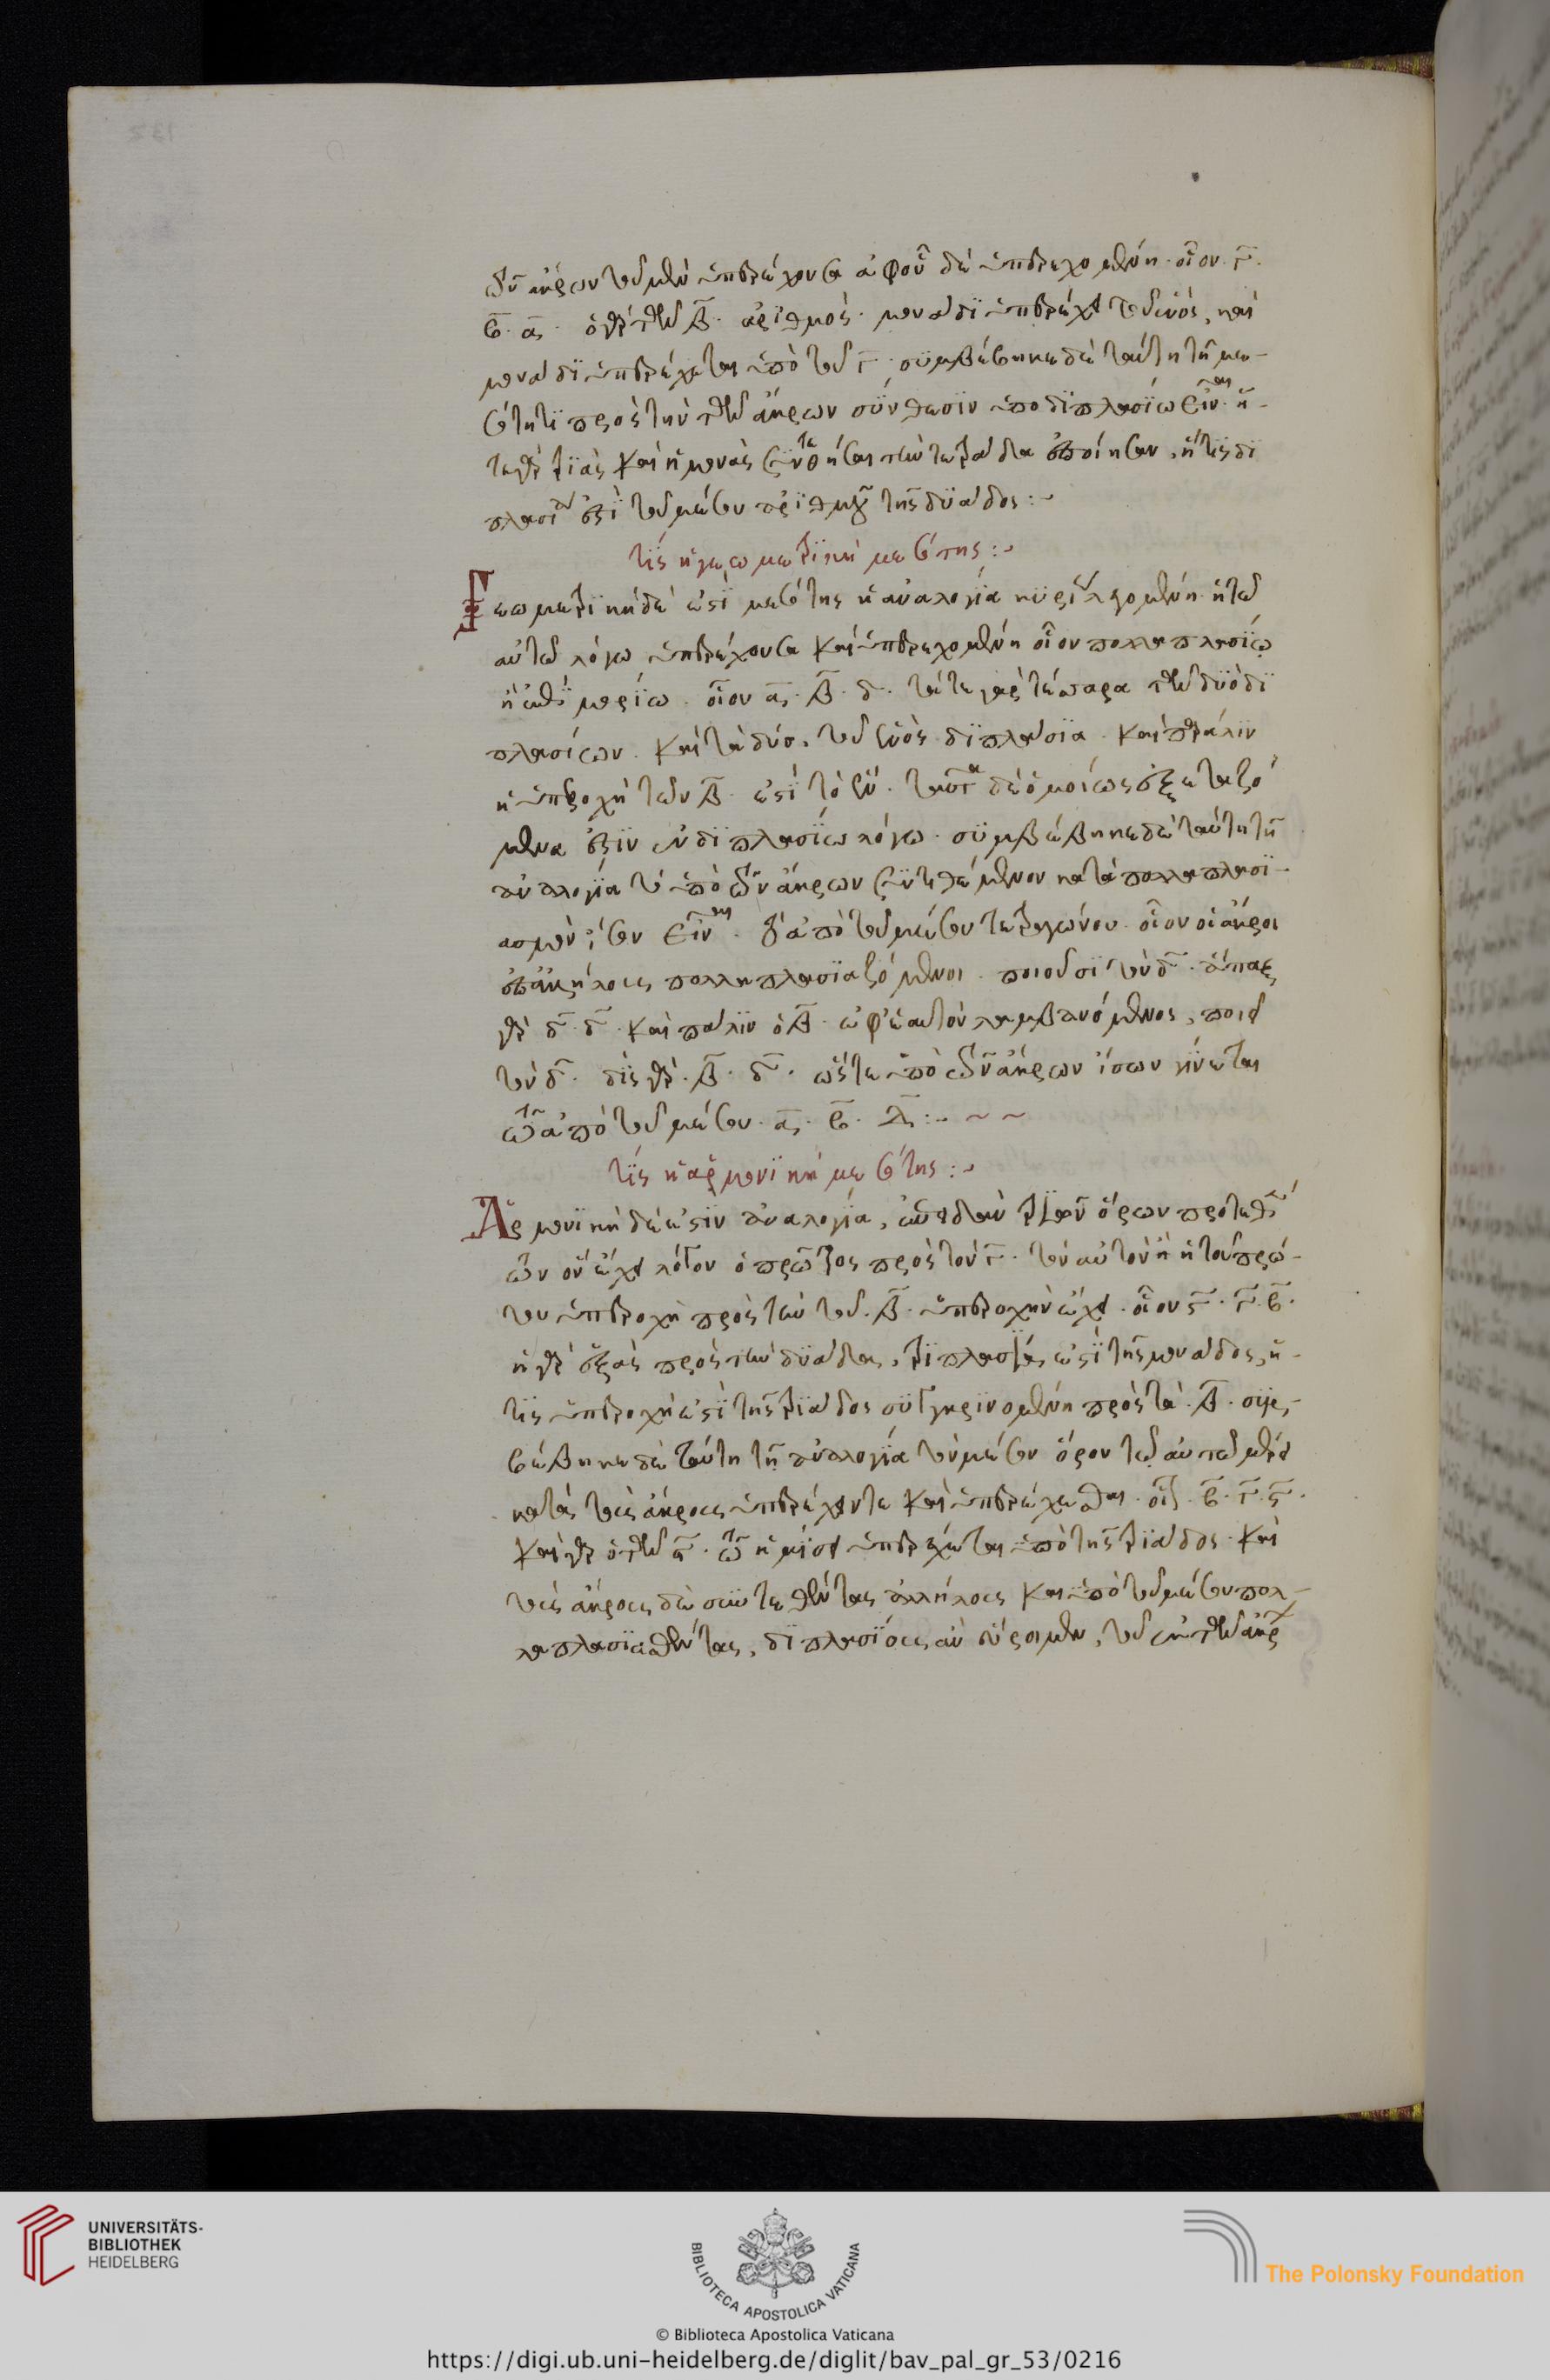 τῶν ἄκρων τοῦ μὲν ὑπερέχουσα ἀφοῦ δὲ ὑπερεχομένη. οἷον. γ̅.
β̅. α̅. ὁ γὰρ τῶν β̅. ἀριθμός. μονάδϊ ὑπερέχει τοῦ ἑνός, καὶ
μονάδϊ ὑπερέχεται ὑπὸ τοῦ γ̅. συμβέβηκε δὲ ταύτη τῆ με-
σότητϊ πρὸς τὴν τῶν ἄκρων σύνθεσϊν ὑποδϊπλασίω εἶναι. ἥ-
τε γὰρ τρϊὰς καὶ ἡ μονὰς συντεθῆσαι τὴν τετράδα ἐποίησαν, ἥτϊς δϊ
πλασία ἐστὶ τοῦ μέσου ἀρϊθμοῦ τῆς δϋάδος :~
τίς ἡ γεωμετρϊκὴ μεσότης :~
Γεωμετρϊκὴ δέ ἐστϊ μεσότης ἡ ἀναλογία κυρίως λεγομένη. ἡ τῶ
αὐτῶ λόγω ὑπερέχουσα καὶ ὑπερεχομένη οἷον πολλαπλασίω
ἢ ἐπϊμορίω. οἷον α̅. β̅. δ̅. τάτε γὰρ τέσσαρα τῶν δϋὸ δϊ
πλασίων. καὶ τὰ δύο, τοῦ ἑνὸς δϊπλάσϊα. καὶ πάλϊν
ἡ ὑπεροχὴ τῶν β̅. ἐστὶ τὸ ἕν. ταῦτα δὲ ὁμοίως ἐξεταζό
μενα ἐστϊν ἐν δϊπλασίω λόγω. συμβέβηκε δὲ ταύτη τῆ
ἀναλογία τὸ ὑπὸ τῶν ἄκρων συντϊθέμενον κατὰ πολλαπλασϊ-
ασμὸν ἴσον εἶναι. τῷ ἀπὸ τοῦ μέσου τετραγώνου. οἷον οἱ ἄκροι
ἐπἀλλήλοις πολλαπλασϊαζόμενοι. ποιοῦσϊ τὸν δ̅. ἅπαξ
γὰρ δ̅. δ̅. καὶ πάλϊν ὁ β̅. ἐφἑαυτὸν λαμβανόμενος, ποιεῖ
τὸν δ̅. δὶς γὰρ. β̅. δ̅. ὥστε ὑπὸ τῶν ἄκρων ἴσων γίνεται
τῶ ἀπὸ τοῦ μέσου. α̅. β̅. δ̅ :~ ~ ~
τίς ἡ ἁρμονϊκὴ μεσότης :~
Ἁρμονϊκὴ δέ ἐστϊν ἀναλογία, ἐπειδὰν τρϊῶν ὅρων προτεθέν
των ὃν ἔχει λόγον ὁ πρῶτος πρὸς τὸν γ̅. τὸν αὐτὸν ἢ ἡ τοῦ πρώ-
του ὑπεροχὴ πρὸς τὴν τοῦ. β̅. ὑπεροχὴν ἔχει. οἷον ϛ̅. γ̅. β̅.
ἡ γὰρ ἑξὰς πρὸς τὴν δϋάδα, τρϊπλασία, ἐστὶ τῆς μονάδος, ἥ-
τϊς ὑπεροχή ἐστὶ τῆς τρϊάδος συγκρϊνομένη πρὸς τὰ. β̅. συμ-
βέβηκε δὲ ταύτη τῆ ἀναλογία τὸν μέσον ὅρον τῶ αὐτῶ μέρει
κατὰ τοὺς ἄκρους ὑπερέχειν τε καὶ ὑπερέχεσθαι. οἷον. β̅. γ̅. ϛ̅.
καὶ γὰρ ὁ τῶν ϛ̅. τῶ ἡμίσει ὑπερέχεται ὑπὸ τῆς τρϊάδος. καὶ
τοὺς ἄκρους δὲ συντεθέντας ἀλλήλοις καὶ ὑπὸ τοῦ μέσου πολ-
λαπλασϊασθέντας, δϊπλασίους ἂν εὕροιμεν, τοῦ ἐκ τῶν ἄκρ
UNIVERSITÄTS-
BIBLIOTHEK
HEIDELBERG
BIBLIOTECA APOSTOLICA VATICANA
The Polonsky Foundation
© Biblioteca Apostolica Vaticana
https://digi.ub.uni-heidelberg.de/diglit/bav_pal_gr_53/0216